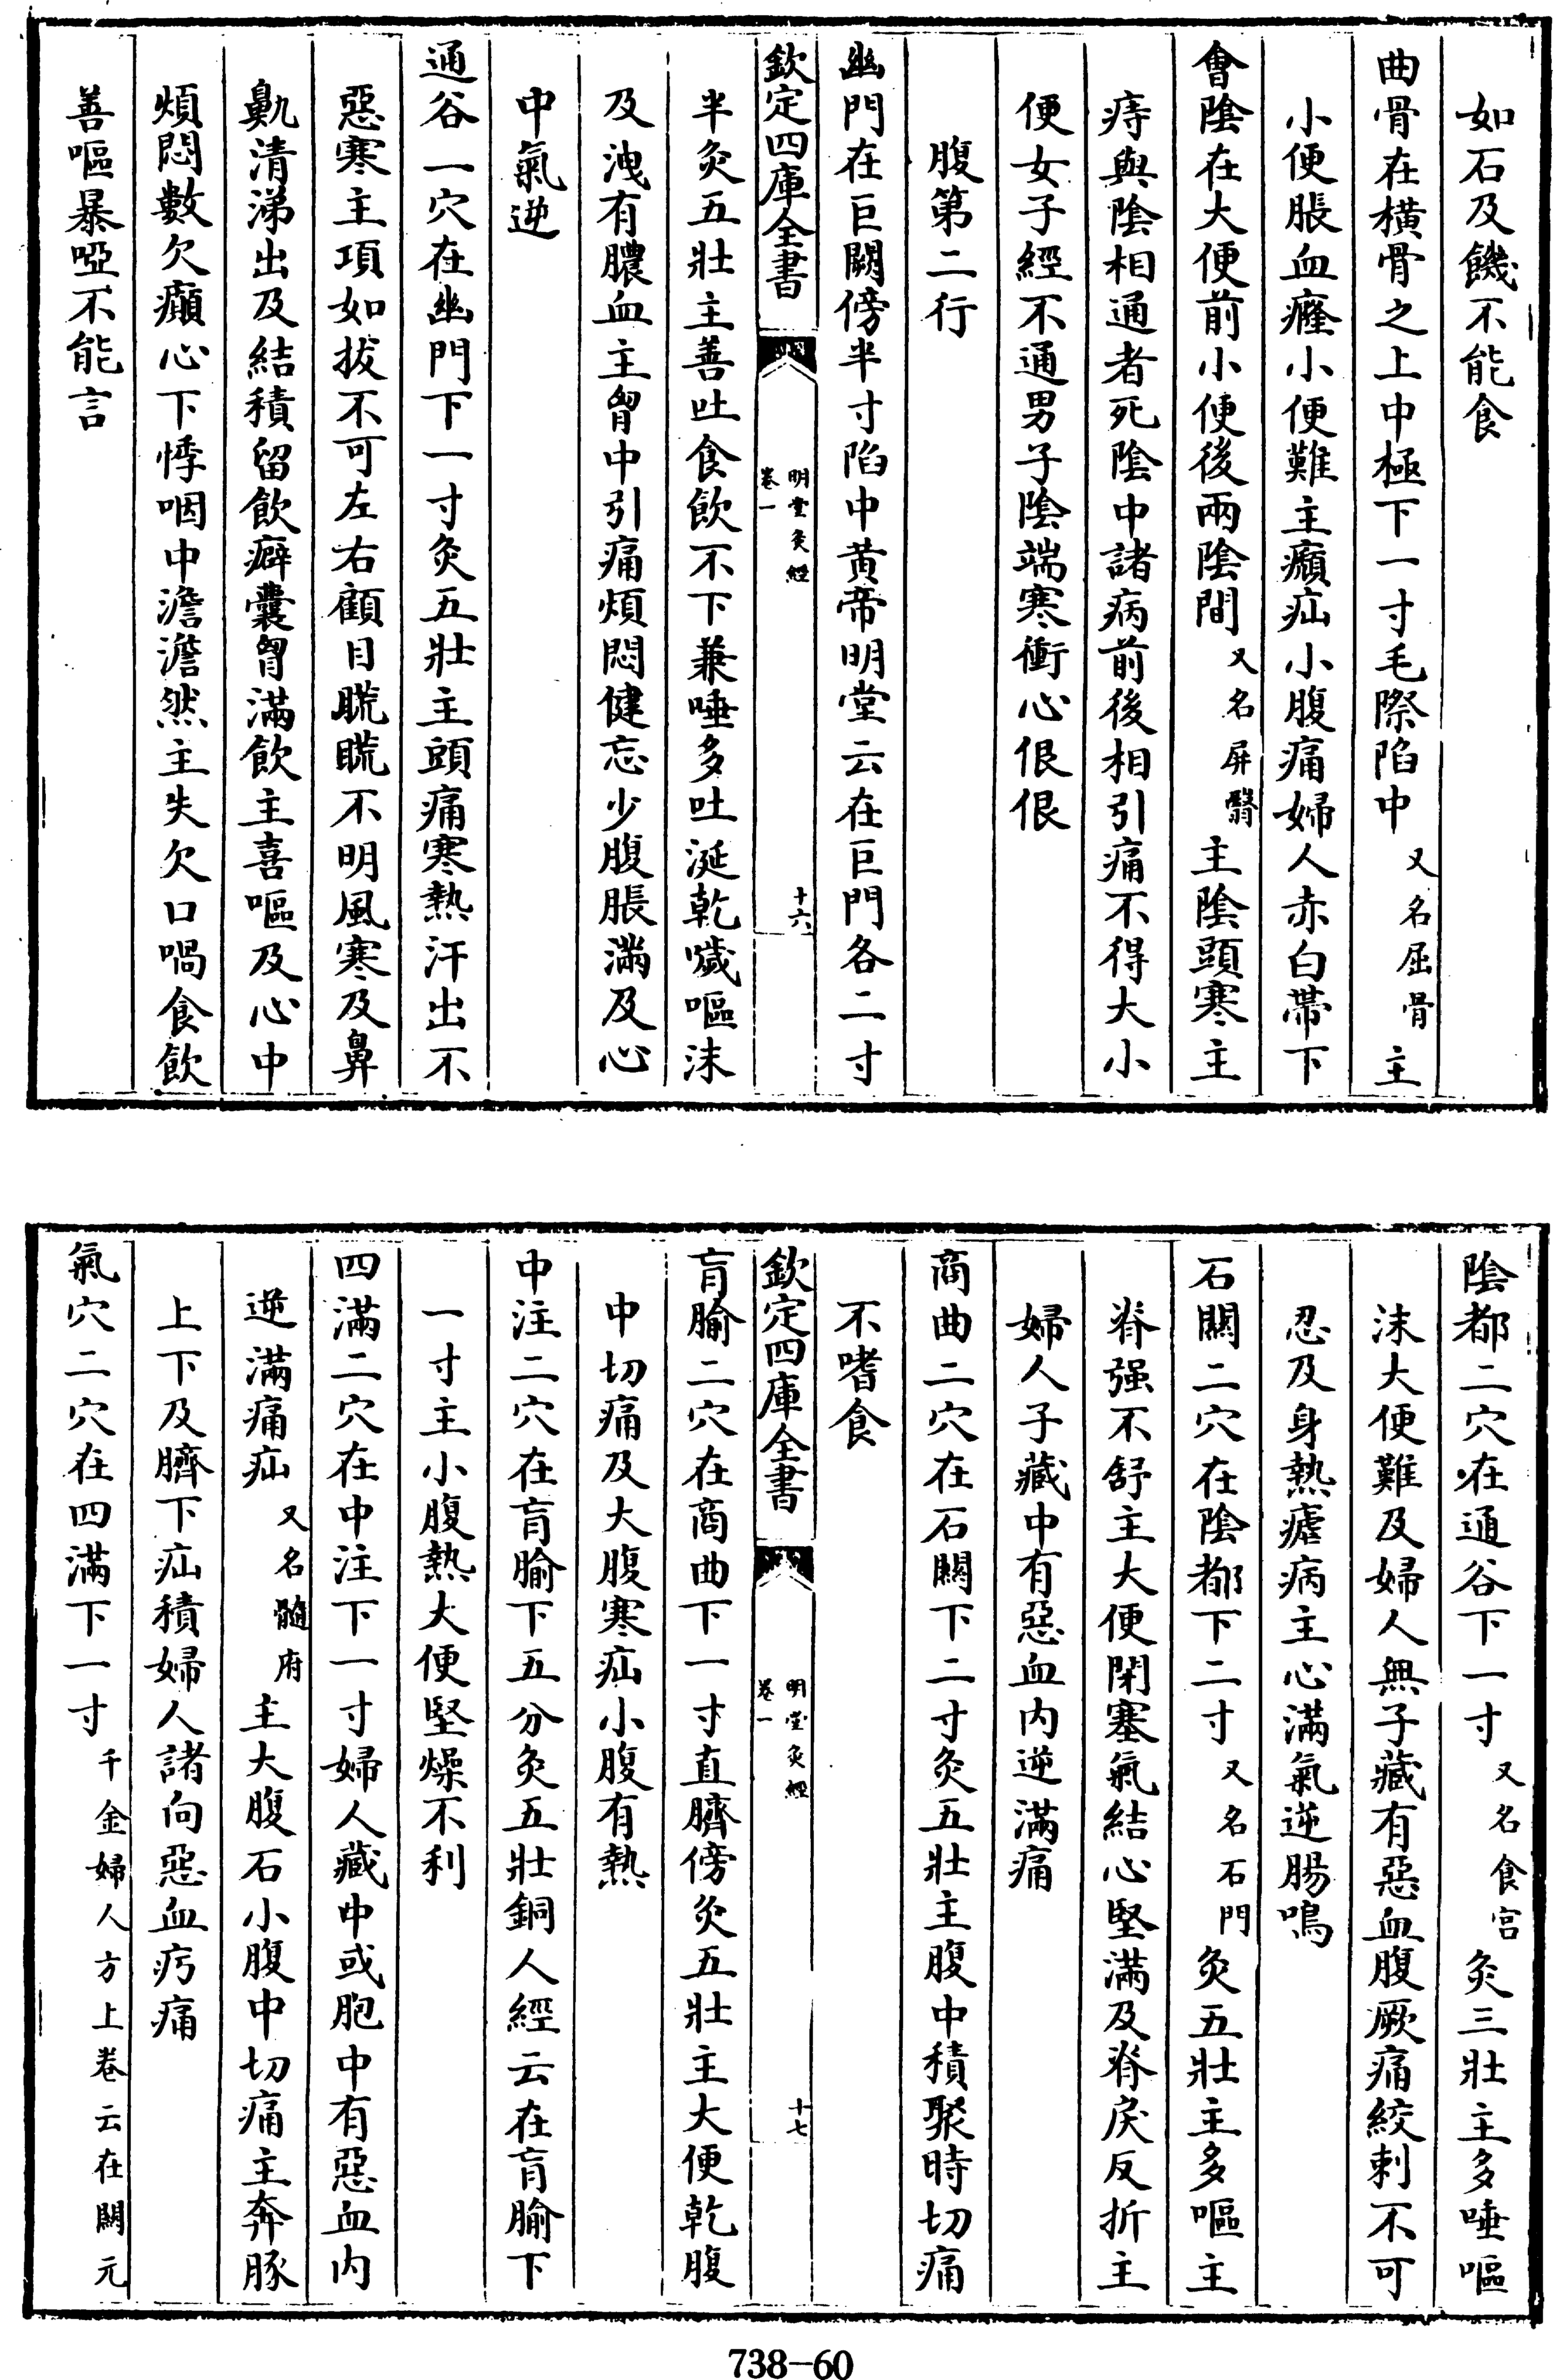 如石及饑不能食
曲骨在橫骨之上中極下一寸毛際陷中又名屈骨主
小便脹血癃小便難主癩疝小腹痛婦人赤白帶下
會陰在大便前小便後兩陰間又名屏翳主陰頭寒主
痔與陰相通者死陰中諸病前後相引痛不得大小
便女子經不通男子陰端寒衝心佷佷
腹第二行
幽門在巨闕傍半寸陷中黄帝明堂云在巨門各二寸
欽定四庫全書
明堂灸經
卷一
十六
半灸五壯主善吐食飲不下兼唾多吐涎乾噦嘔沫
及洩有膿血主胷中引痛煩悶健忘少腹脹滿及心
中氣逆
通谷一穴在幽門下一寸灸五壯主頭痛寒熱汗出不
惡寒主項如拔不可左右顧目䀮䀮不明風寒及鼻
鼽清涕出及結積留飲癖囊胷滿飲主喜嘔及心中
煩悶數欠癲心下悸咽中澹澹然主失欠口喎食飲
善嘔暴啞不能言
陰都二穴在通谷下一寸又名食宫灸三壯主多唾嘔
沫大便難及婦人無子藏有惡血腹厥痛絞刺不可
忍及身熱瘧病主心滿氣逆腸鳴
石關二穴在陰都下二寸又名石門灸五壯主多嘔主
脊强不舒主大便閉塞氣結心堅滿及脊戾反折主
婦人子藏中有惡血内逆滿痛
商曲二穴在石關下二寸灸五壯主腹中積聚時切痛
不嗜食
欽定四庫全書
明堂灸經
卷一
十七
肓腧二穴在商曲下一寸直臍傍灸五壯主大便乾腹
中切痛及大腹寒疝小腹有熱
中注二穴在肓腧下五分灸五壯銅人經云在肓腧下
一寸主小腹熱大便堅燥不利
四滿二穴在中注下一寸婦人藏中或胞中有惡血内
逆滿痛疝又名髓府主大腹石小腹中切痛主奔豚
上下及臍下疝積婦人諸向惡血疞痛
氣穴二穴在四滿下一寸千金婦人方上卷云在關元
738-60